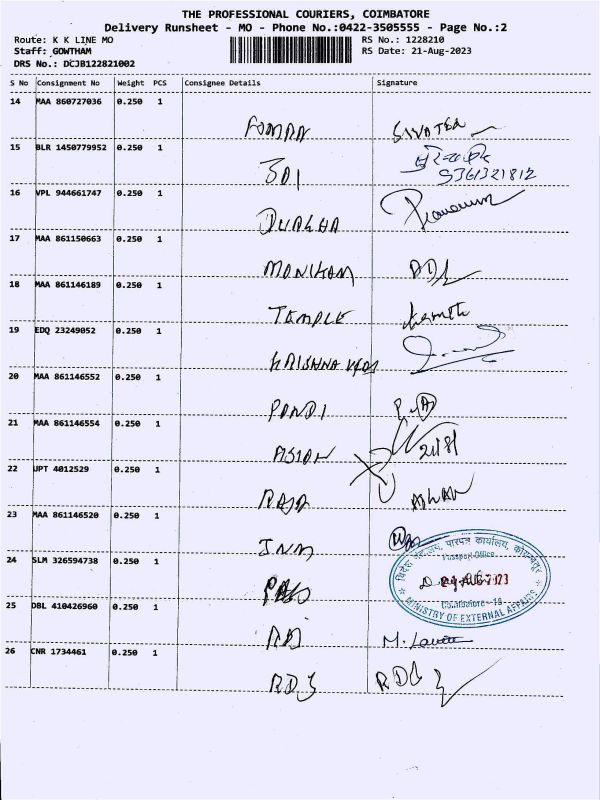 THE PROFESSIONAL COURIERS, COIMBATORE
Delivery Runsheet - MO - Phone No.:0422-3505555 - Page No.:2
Route: K K LINE MO RS No.: 1228210
Staff: GOWTHAM RS Date: 21-Aug-2023
DRS No.: DCJB122821002
S No Consignment No Weight PCS Consignee Details Signature
14 MAA 860727036 0.250 1
15 BLR 1450779952 0.250 1
SAI
9361321812
16 VPL 944661747 0.250 1
DURGHA
17 MAA 861150663 0.250 1
MANIKAM
18 MAA 861146189 0.250 1
TEMPLE
19 EDQ 23249052 0.250 1
KRISHNA
20 MAA 861146552 0.250 1
PANDI
21 MAA 861146554 0.250 1
ASIAN 21/8/
22 UPT 4012529 0.250 1
RAJA
23 MAA 861146520 0.250 1
24 SLM 326594738 0.250 1
विदेश मंत्रालय, पारपत्र कार्यालय, कोयम्बत्तूर
Passport Office
Coimbatore - 18
MINISTRY OF EXTERNAL AFFAIRS
25 DBL 410426960 0.250 1
26 CNR 1734461 0.250 1